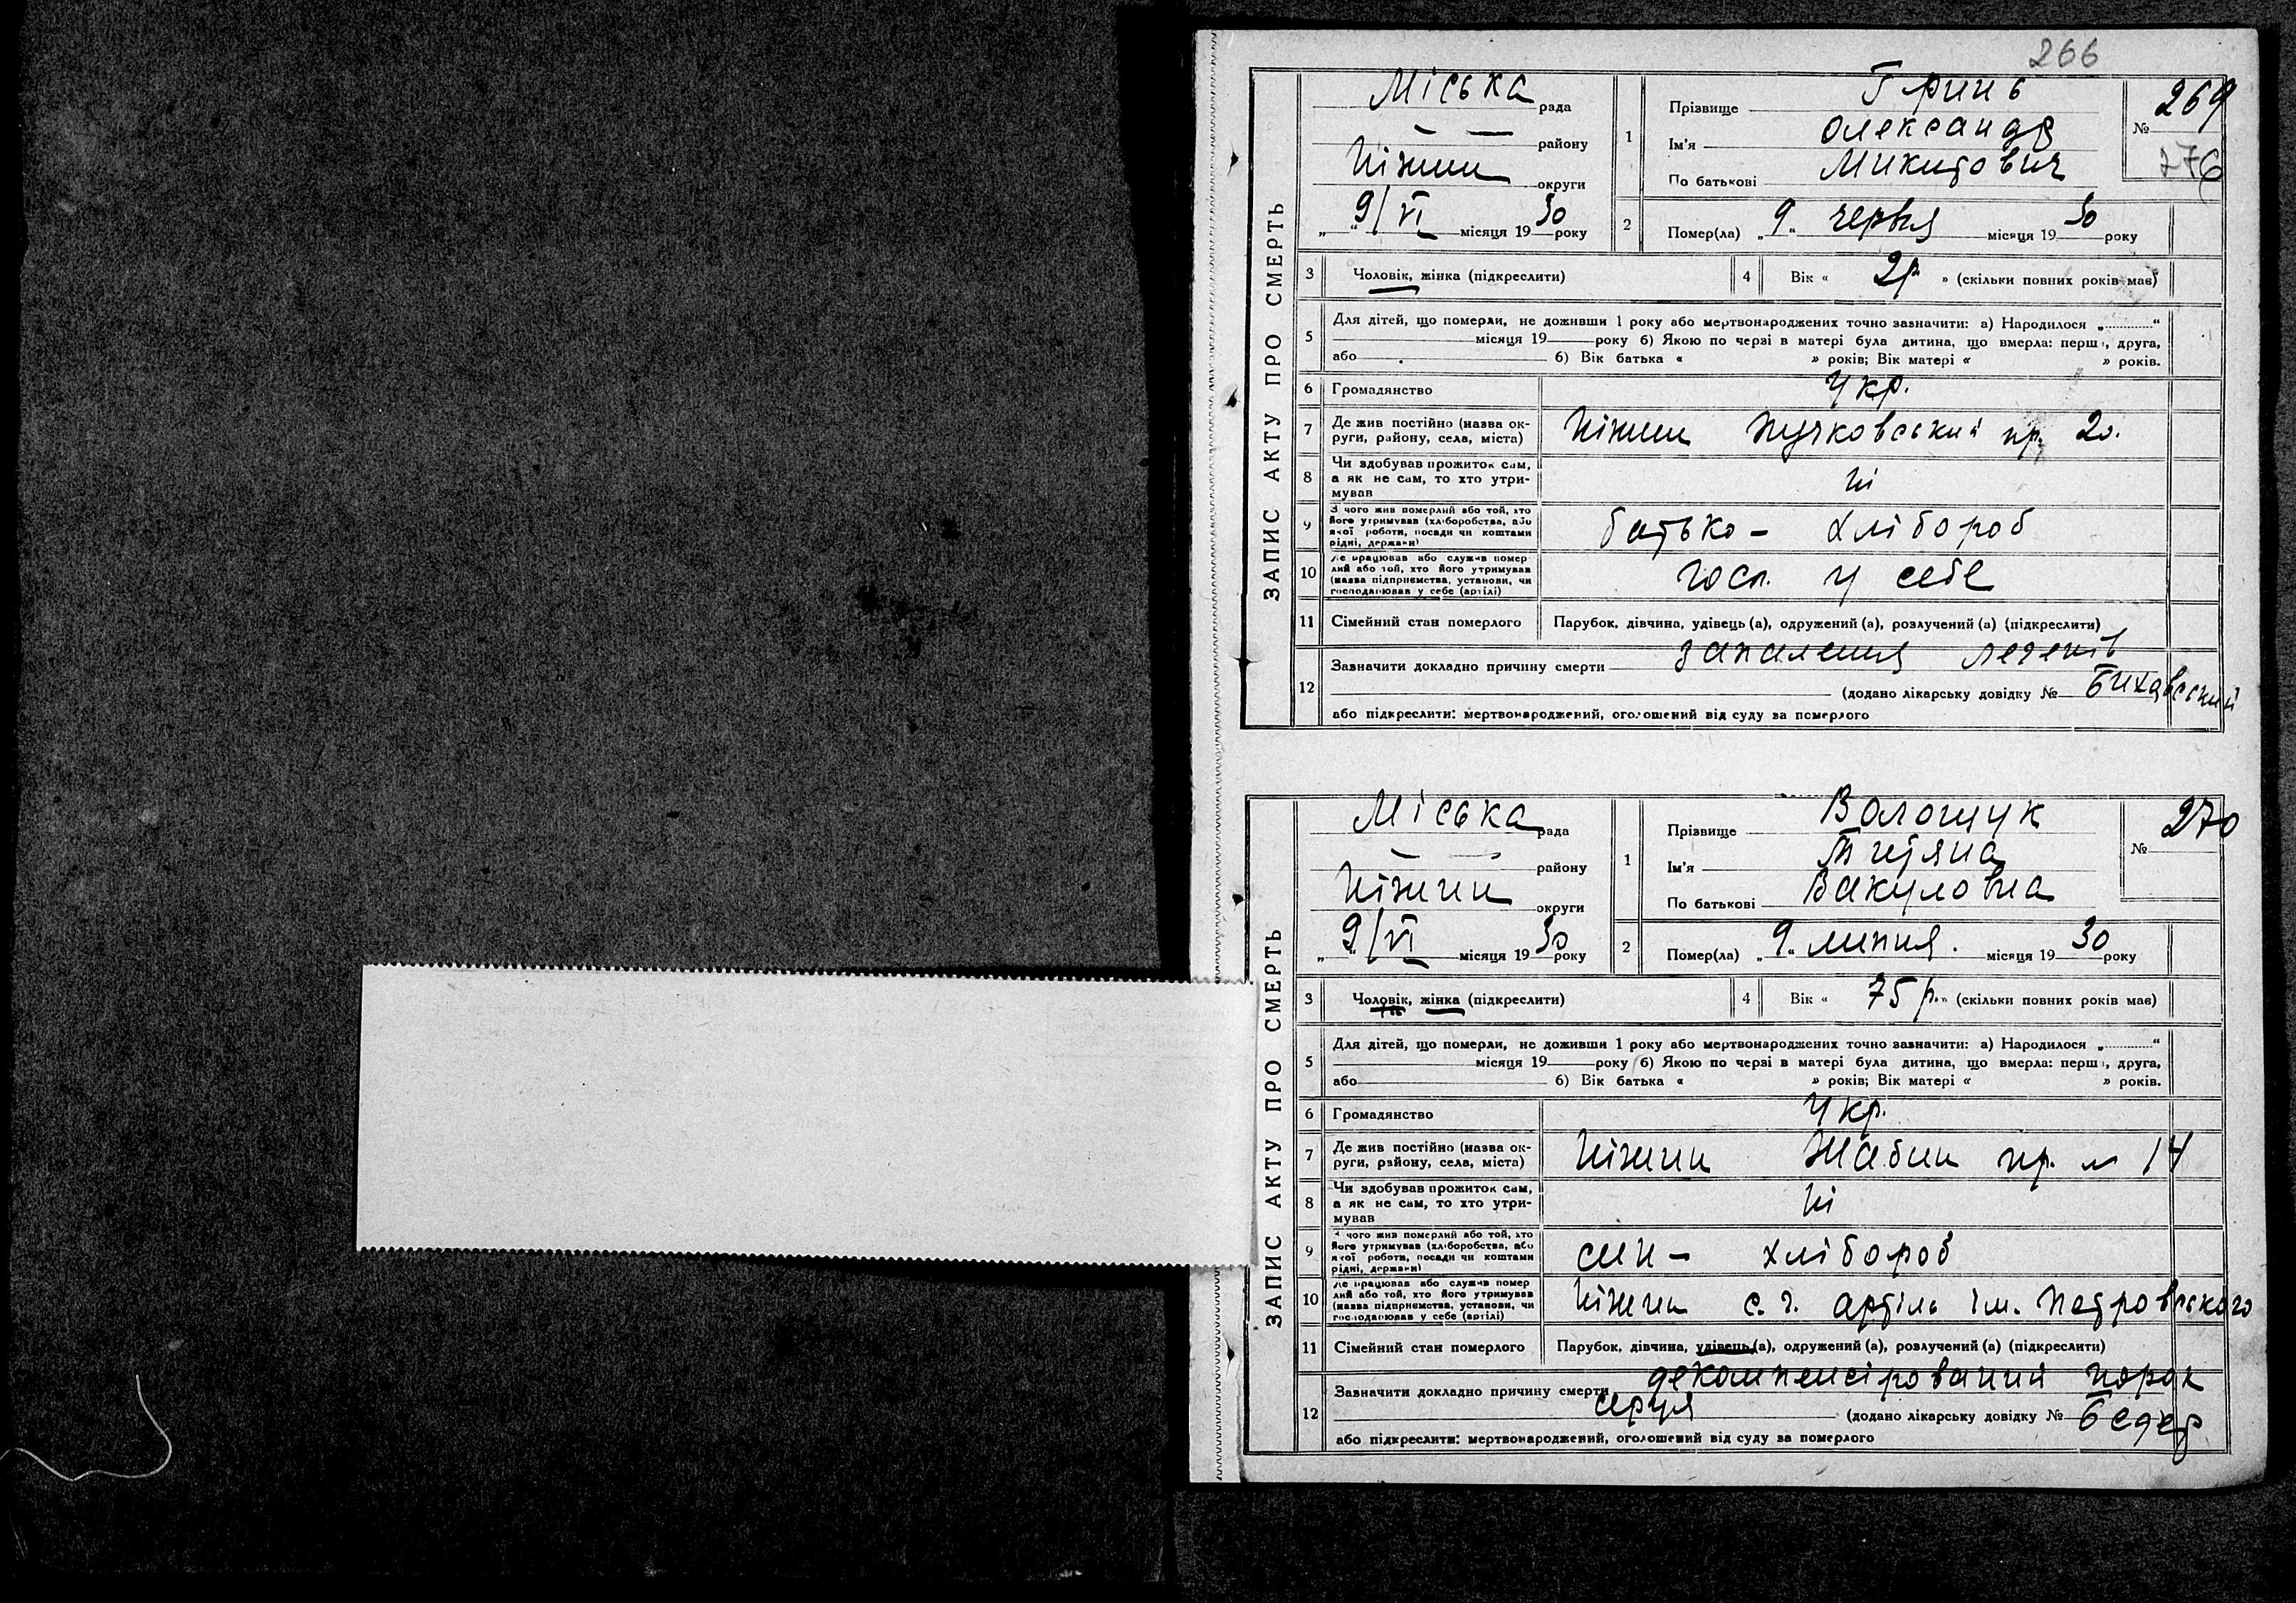 266
ЗАПИС АКТУ ПРО СМЕРТЬ
Міська рада
— — району
Ніжин округи
„ “ 9/VI місяця 1930 року
1 Прізвище Гринь
Ім'я Олександр
По батькові Микитович
№ 269
276
2 Помер(ла) „9“ червня місяця 1930 року
3 Чоловік, жінка (підкреслити)
4 Вік « 2р » (скільки повних років мав)
5 Для дітей, що померли, не доживши 1 року або мертвонароджених точно зазначити: а) Народилося „ “
місяця 19 року б) Якою по черзі в матері була дитина, що вмерла: перш , друга,
або б) Вік батька « » років; Вік матері « » років.
6 Громадянство Укр.
7 Де жив постійно (назва ок-
руги, району, села, міста) Ніжин пр. 20.
8 Чи здобував прожиток сам,
а як не сам, то хто утри-
мував Ні
9 З чого жив померлий або той, хто
його утримував (хліборобства, або
якої роботи, посади чи коштами
рідні, держави) батько – хлібороб
10 Де працював або служив помер
лий або той, хто його утримував
(назва підприємства, установи, чи
господарював у себе (артілі) госп. у себе
11 Сімейний стан померлого Парубок, дівчина, удівець (а), одружений (а), розлучений (а) (підкреслити)
12 Зазначити докладно причину смерти запалення легенів
(додано лікарську довідку №
або підкреслити: мертвонароджений, оголошений від суду за померлого
ЗАПИС АКТУ ПРО СМЕРТЬ
Міська рада
— — району
Ніжин округи
„ “ 9/VI місяця 1930 року
1 Прізвище Волощук
Ім'я Тетяна
По батькові Вакуловна
№ 270
2 Помер(ла) „9“ липня. місяця 1930 року
3 Чоловік, жінка (підкреслити)
4 Вік « 75 р. » (скільки повних років мав)
5 Для дітей, що померли, не доживши 1 року або мертвонароджених точно зазначити: а) Народилося „ “
місяця 19 року б) Якою по черзі в матері була дитина, що вмерла: перш , друга,
або б) Вік батька « » років; Вік матері « » років.
6 Громадянство Укр.
7 Де жив постійно (назва ок-
руги, району, села, міста) Ніжин Жабин пр. № 14
8 Чи здобував прожиток сам,
а як не сам, то хто утри-
мував Ні
9 З чого жив померлий або той, хто
його утримував (хліборобства, або
якої роботи, посади чи коштами
рідні, держави) син – хлібороб
10 Де працював або служив помер
лий або той, хто його утримував
(назва підприємства, установи, чи
господарював у себе (артілі) Ніжин с.г. артіль ім. Петровського
11 Сімейний стан померлого Парубок, дівчина, удівець (а), одружений (а), розлучений (а) (підкреслити)
12 Зазначити докладно причину смерти декомпенсірований порок
серця (додано лікарську довідку №
або підкреслити: мертвонароджений, оголошений від суду за померлого